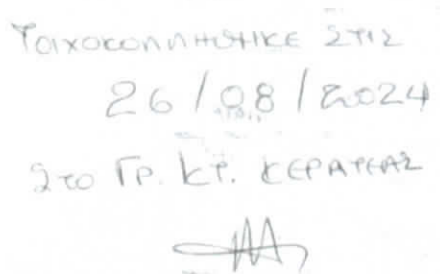 Τοιχοκολλήθηκε ΣΤΙΣ
26/08/2024
Στο Γρ. Κτ. ΚΕΡΑΤΕΑΣ